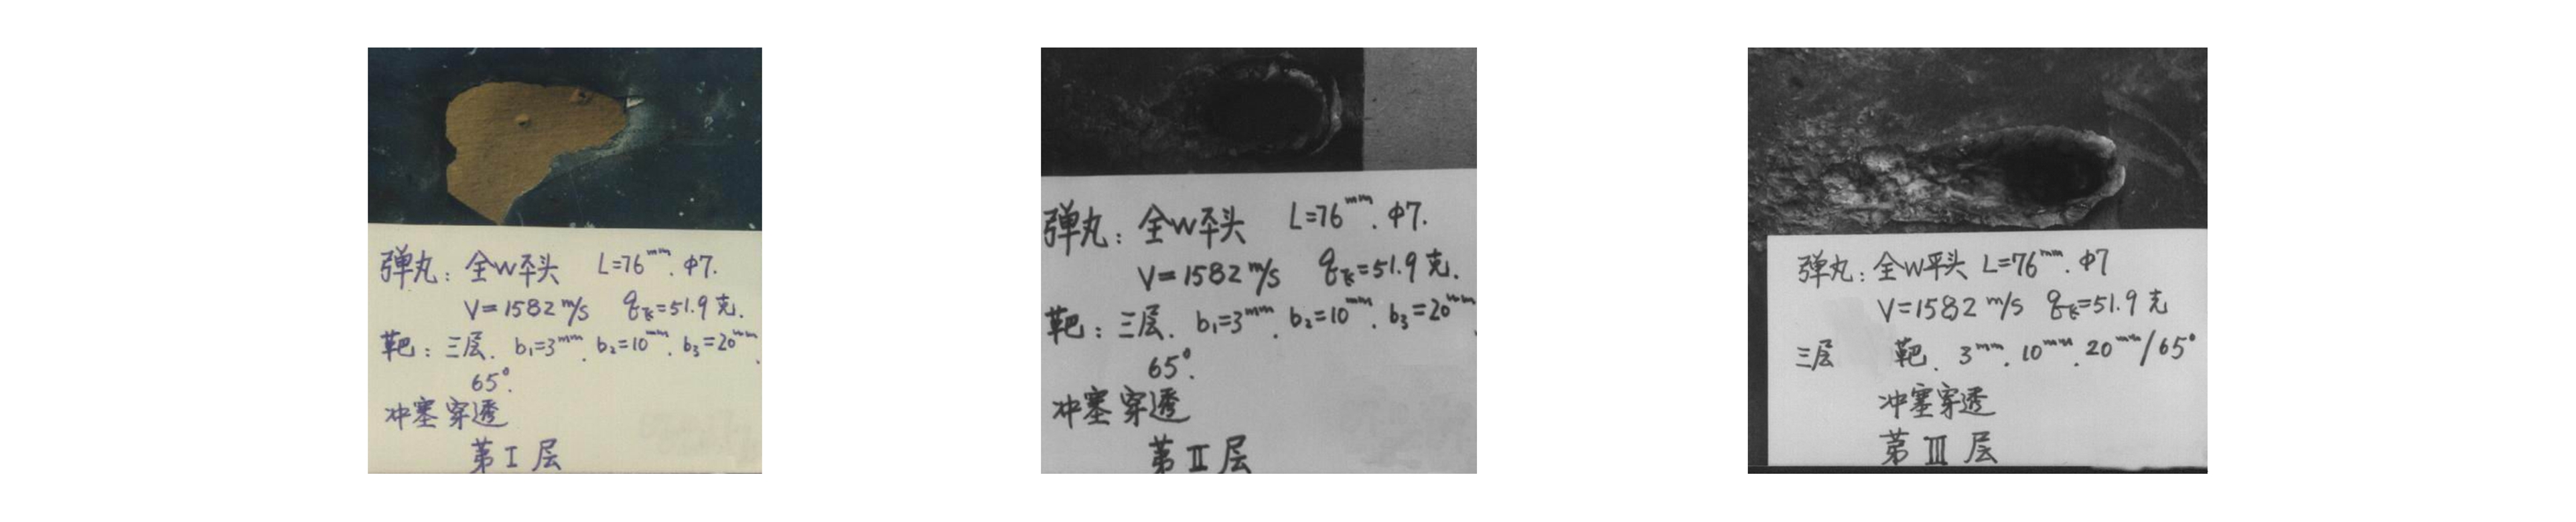 弹丸：全W平头 L=76mm. Φ7.
V=1582 m/s q飞=51.9克.
靶：三层. b₁=3mm. b₂=10mm. b₃=20mm.
65°.
冲塞穿透
第I层
弹丸：全W平头 L=76mm. Φ7.
V=1582 m/s q飞=51.9克.
靶：三层. b₁=3mm. b₂=10mm. b₃=20mm.
65°.
冲塞穿透
第II层
弹丸：全W平头 L=76mm. Φ7
V=1582 m/s q飞=51.9克
三层 靶. 3mm. 10mm. 20mm/65°
冲塞穿透
第III层